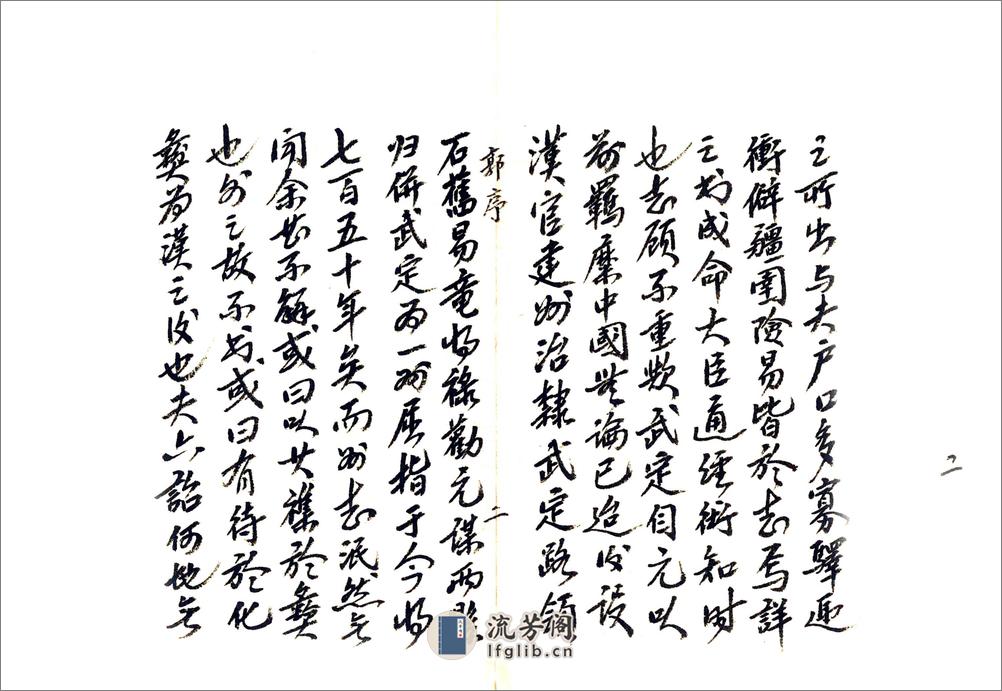 之所出与夫户口多寡驛遞
衝僻疆圉險易皆於志焉詳
之書成命大臣通經術知时
也志顧不重歟武定自元以
前羈縻中國無論已迨後設
漢官建州治隸武定路領
郭序
二
石舊易竜将祿勸元谋两縣
归併武定为一州屈指于今将
七百五十年矣而州志泯然无
闻余甚不解或曰以其雜於彝
也州之故不書或曰有待於化
彝为漢之後也夫六詔何地无
二
流芳阁
lfglib.cn